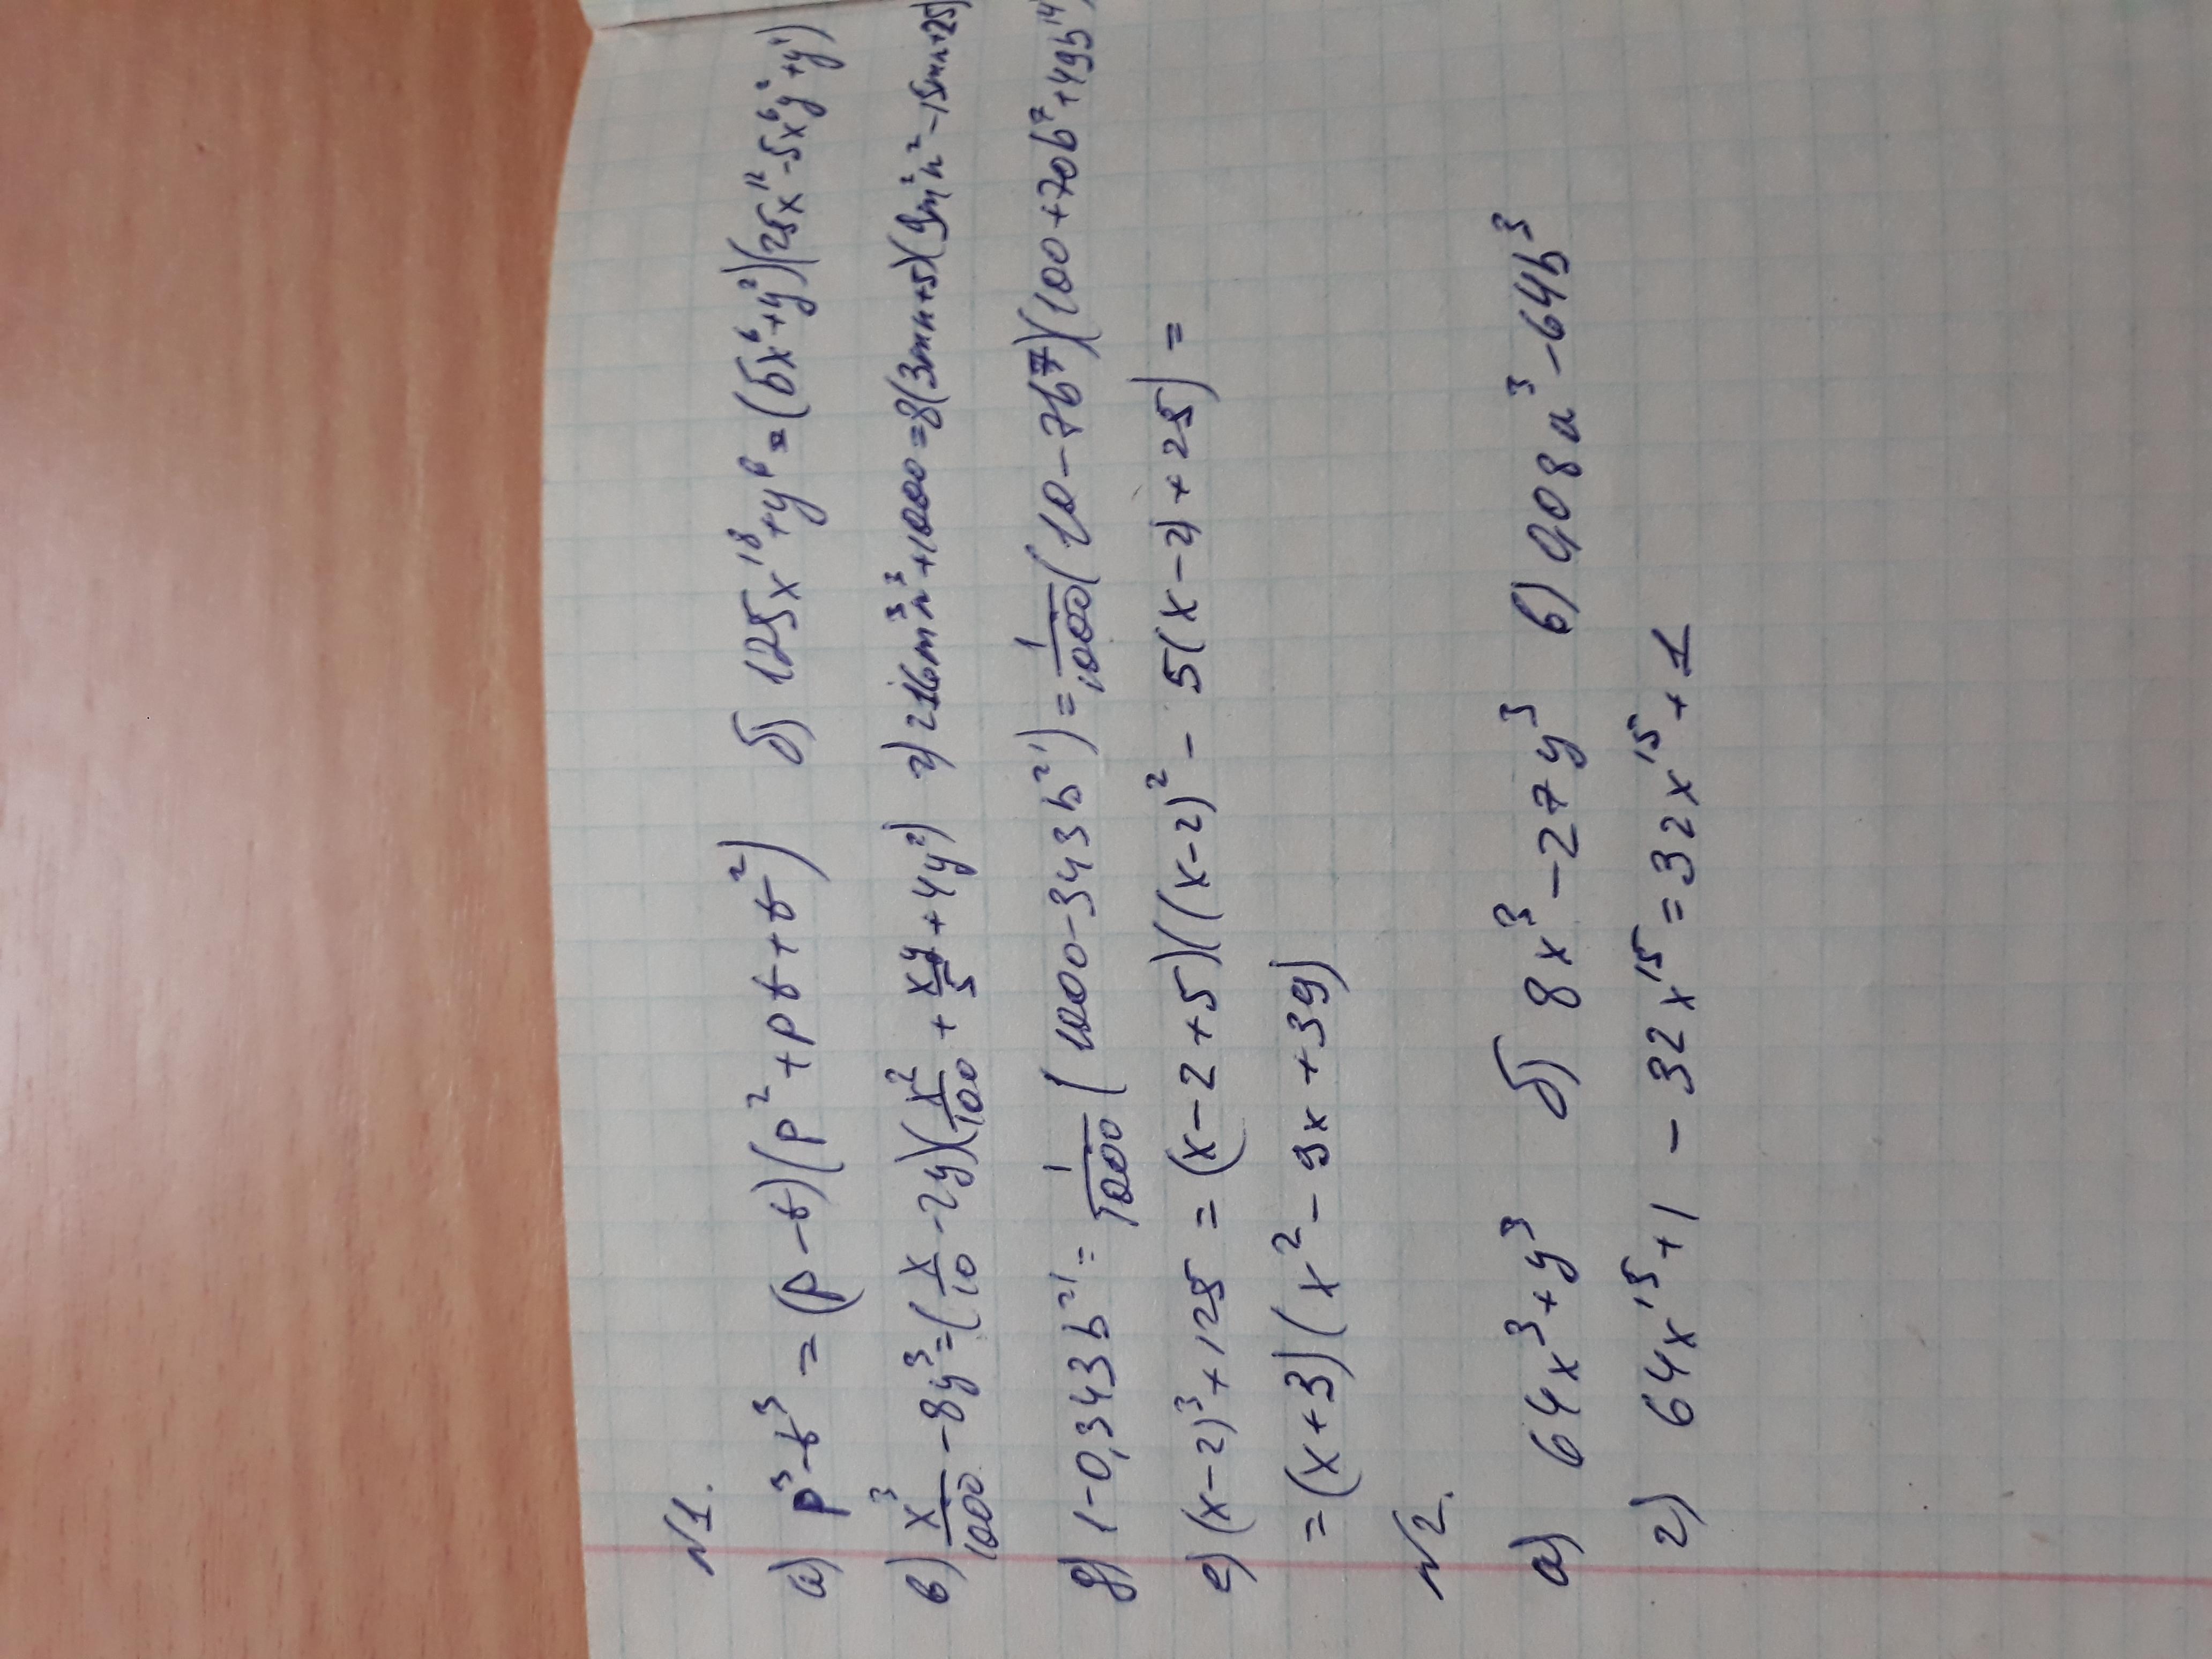 №1.
а) p³-t³ = (p-t)(p²+pt+t²) б) 125x¹⁸+y⁶=(5x⁶+y²)(25x¹²-5x⁶y²+y⁴)
в) x³/1000 - 8y³=(x/10 - 2y)(x²/100 + xy/5 + 4y²) г) 216m³n³+1000=8(3mn+5)(9m²n²-15mn+25)
д) 1-0,343b²¹ = 1/1000 (1000-343b²¹) = 1/1000 (10-7b⁷)(100+70b⁷+49b¹⁴)
е) (x-2)³+125 = (x-2+5)((x-2)² - 5(x-2)+25) =
= (x+3)(x² - 9x+39)
№2.
а) 64x³+y³ б) 8x³-27y³ в) 0,08a³-64b³
г) 64x¹⁵+1 - 32x¹⁵ = 32x¹⁵+1